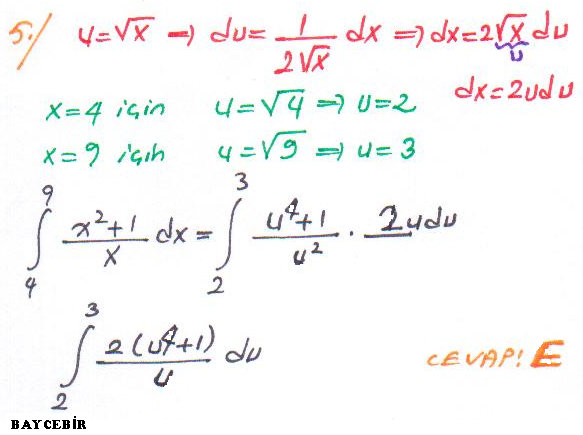 5./ u=√x ⇒ du= 1/(2√x) dx ⇒ dx=2√x du
u
dx=2udu
x=4 için u=√4 ⇒ u=2
x=9 için u=√9 ⇒ u=3
∫₄⁹ (x²+1)/x dx = ∫₂³ (u⁴+1)/u² · 2udu
∫₂³ 2(u⁴+1)/u du
CEVAP! E
BAYCEBİR